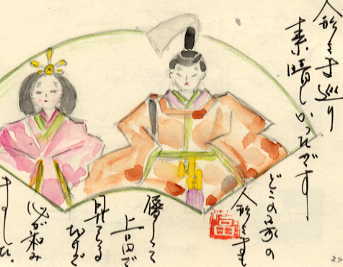 人形さま巡り
素晴しかったです
どこの家の
人形さまも
優しくて
上品で
見てる
だけで
心が和み
ました。